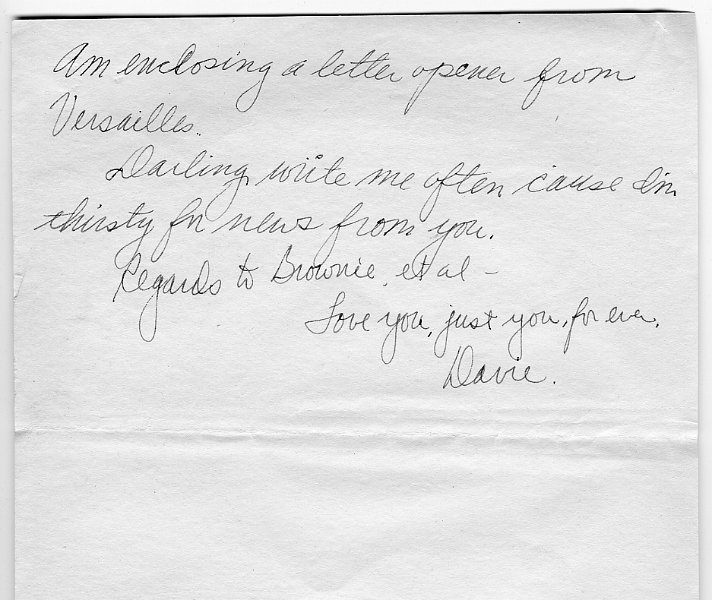 Am enclosing a letter opener from
Versailles.
Darling, write me often 'cause I'm
thirsty for news from you.
Regards to Brownie, et al –
Love you, just you, for ever.
Davie.